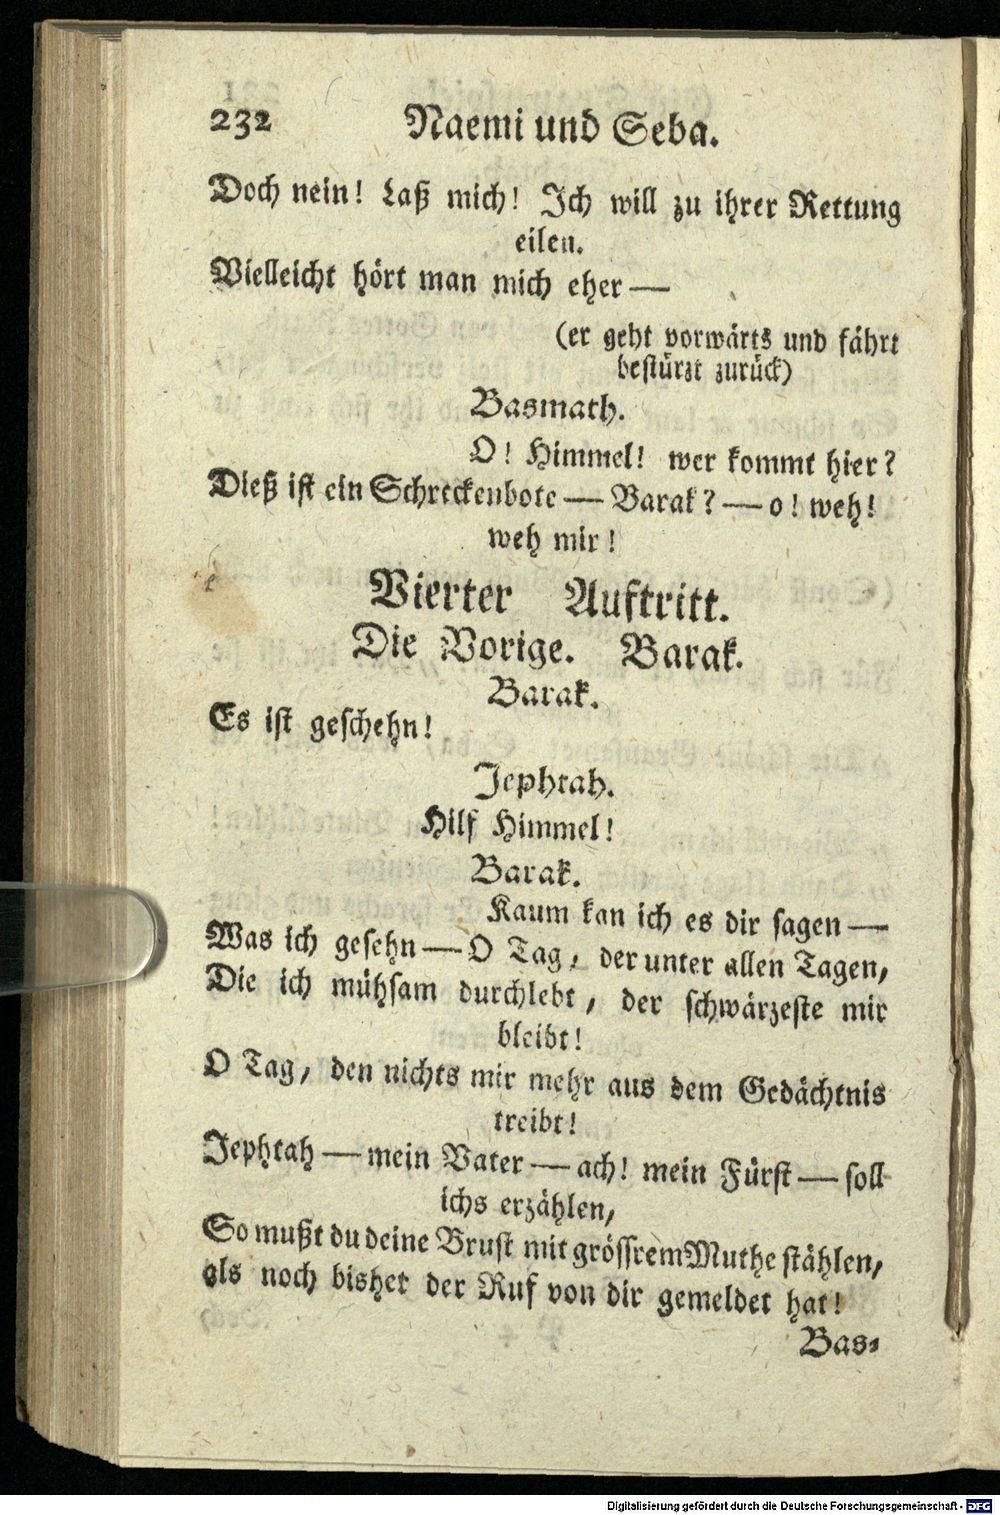 232 Naemi und Seba.
Doch nein! Laß mich! Ich will zu ihrer Rettung
eilen.
Vielleicht hört man mich eher —
(er geht vorwärts und fährt
bestürzt zurück)
Basmath.
O! Himmel! wer kommt hier?
Dieß ist ein Schreckenbote — Barak? — o! weh!
weh mir!
Vierter Auftritt.
Die Vorige. Barak.
Barak.
Es ist geschehn!
Jephtah.
Hilf Himmel!
Barak.
Kaum kan ich es dir sagen —
Was ich gesehn — O Tag, der unter allen Tagen,
Die ich mühsam durchlebt, der schwärzeste mir
bleibt!
O Tag, den nichts mir mehr aus dem Gedächtnis
treibt!
Jephtah — mein Vater — ach! mein Fürst — soll
ichs erzählen,
So mußt du deine Brust mit grössrem Muthe stählen,
als noch bisher der Ruf von dir gemeldet hat!
Bas-
Digitalisierung gefördert durch die Deutsche Forschungsgemeinschaft - DFG